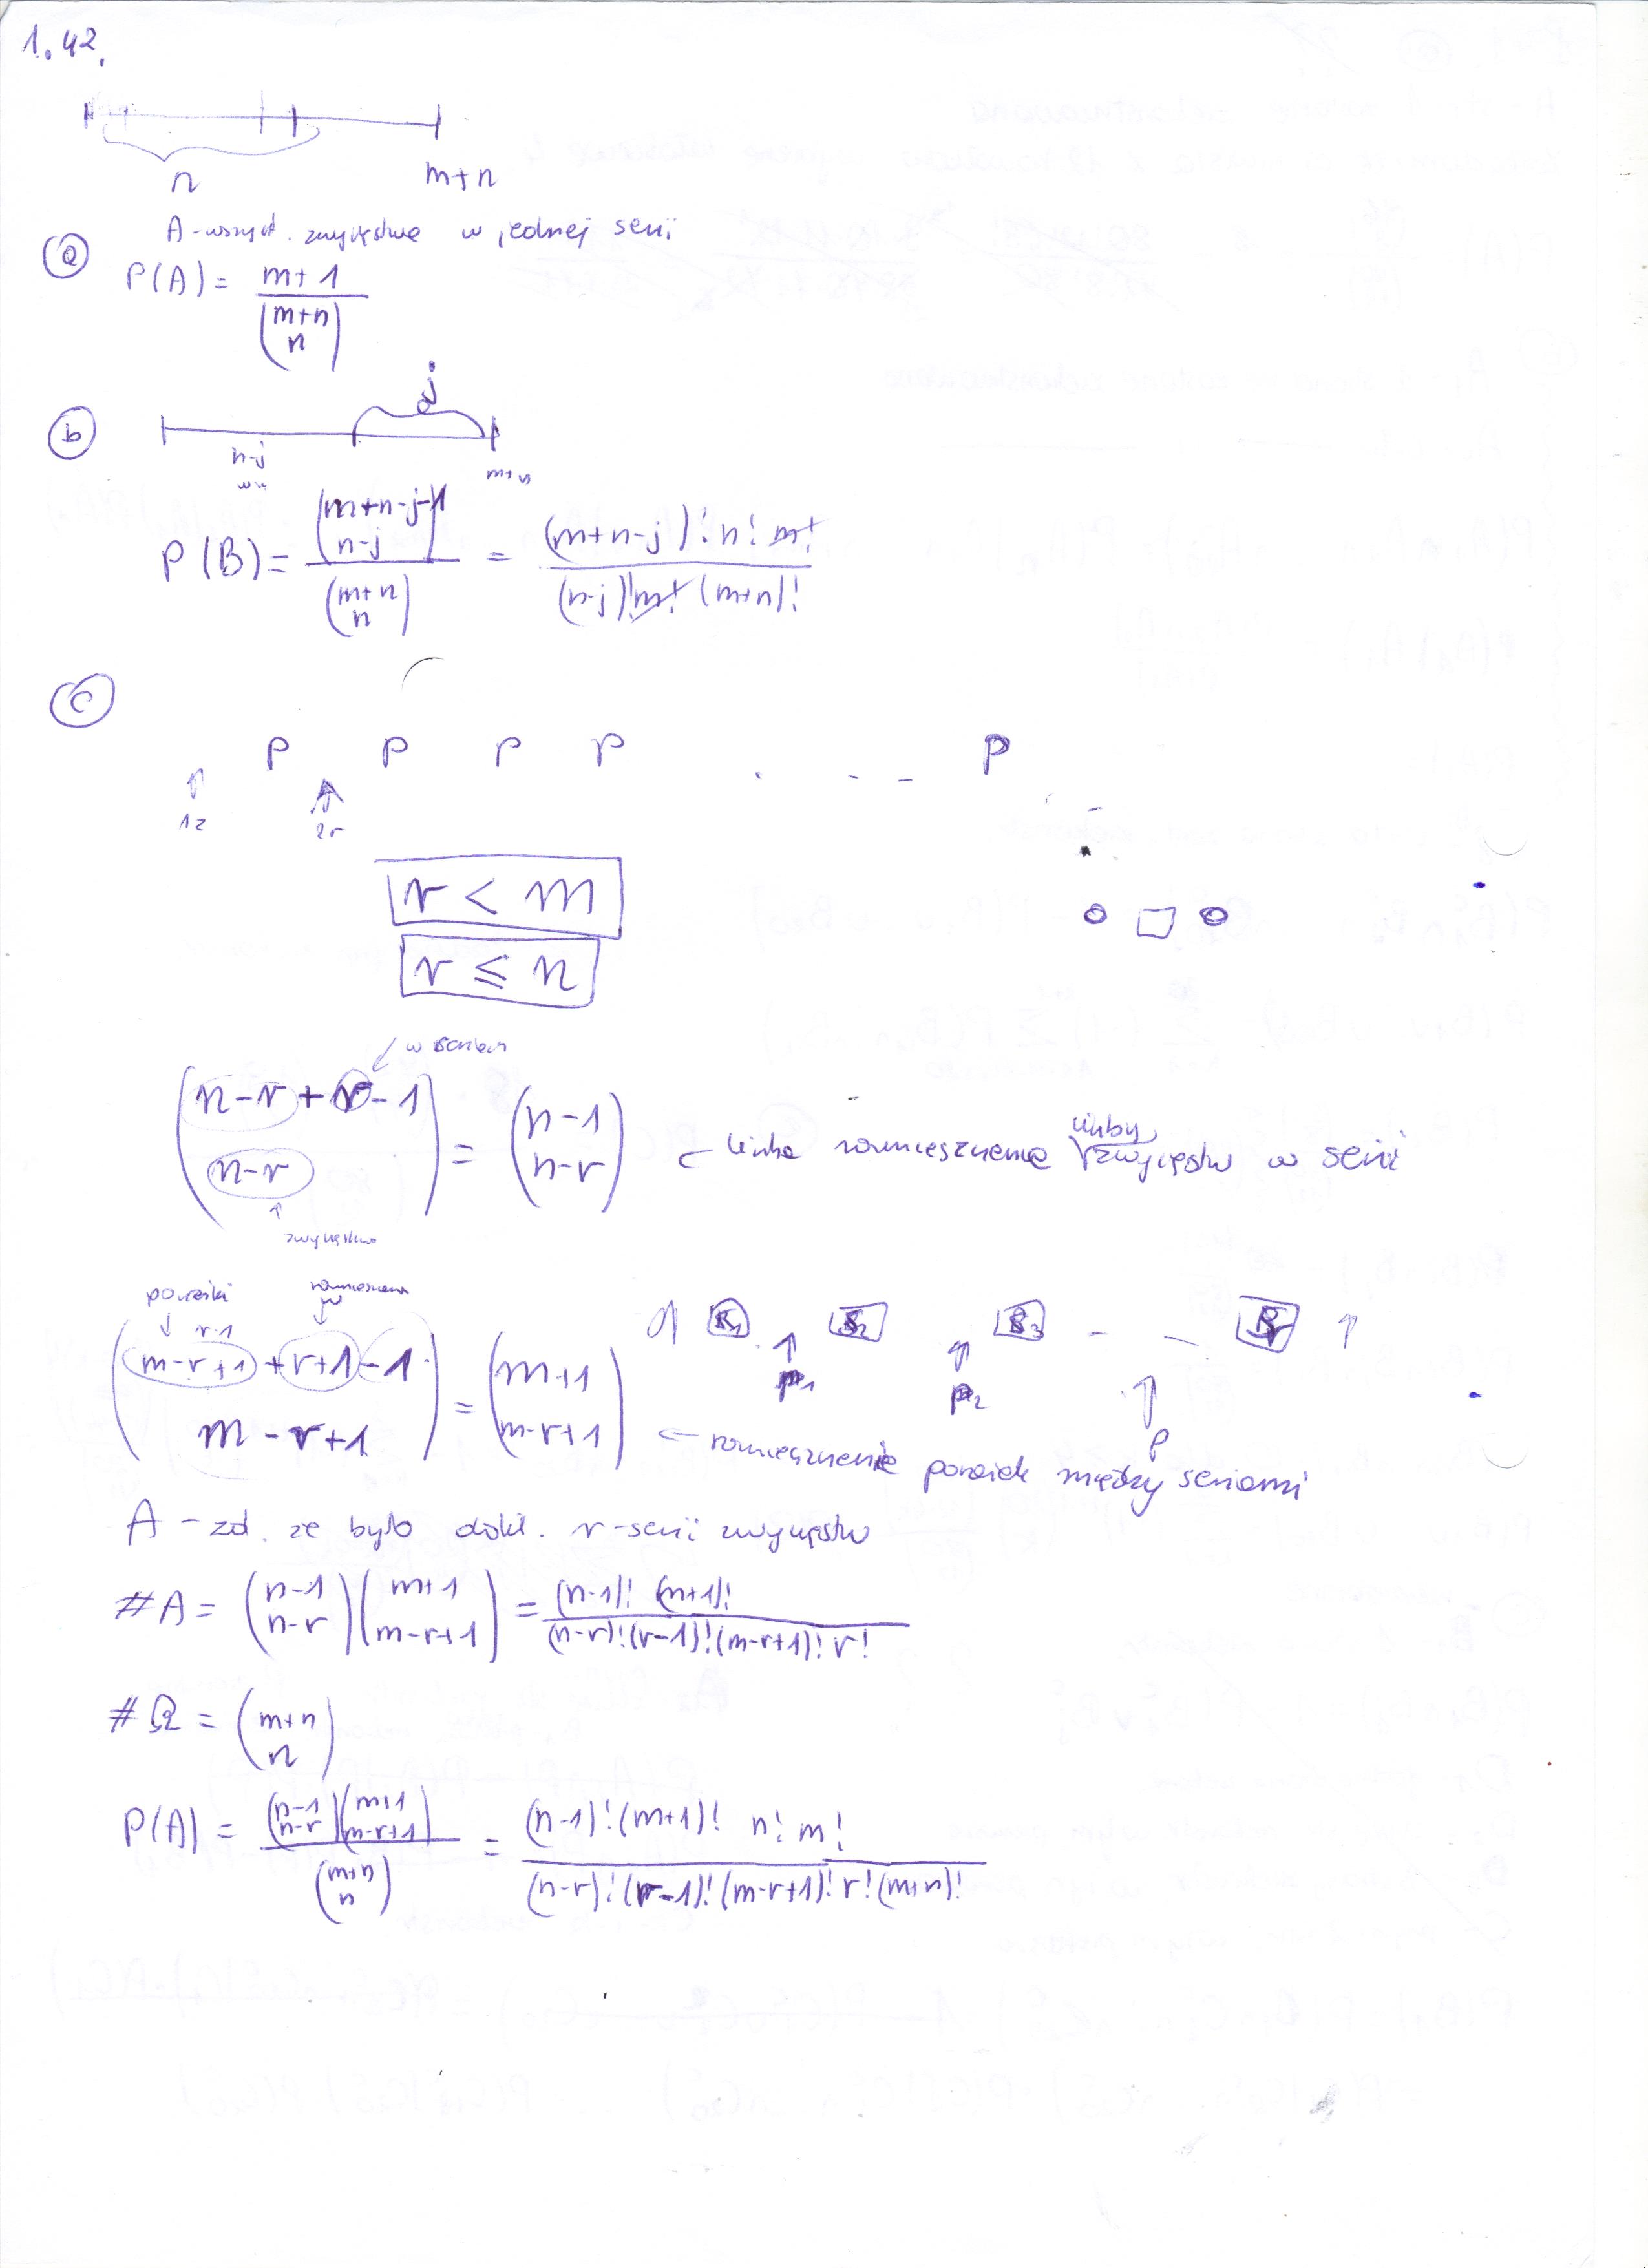 1.42.
n
m+n
A - wszyst. zwycięstwa w jednej serii
(a)
P(A) = (m+1) / \binom{m+n}{n}
j
(b)
n-j
m+n
P(B) = \binom{m+n-j-1}{n-j} / \binom{m+n}{n} = (m+n-j)! n! m! / (n-j)! m! (m+n)!
(c)
P P P P . - - P
1z
r < m
r ≤ n
\binom{n-r+r-1}{n-r} = \binom{n-1}{n-r} ← liczba rozmieszczenia liczby zwycięstw w serii
zwycięstwa
porażki
r-1
\binom{m-r+1+r+1-1}{m-r+1} = \binom{m+1}{m-r+1}
← rozmieszczenie porażek między seriami
A - zd. że było dokł. r-serii zwycięstw
#A = \binom{n-1}{n-r} \binom{m+1}{m-r+1} = (n-1)! (m+1)! / (n-r)! (r-1)! (m-r+1)! r!
#Ω = \binom{m+n}{n}
P(A) = \binom{n-1}{n-r} \binom{m+1}{m-r+1} / \binom{m+n}{n} = (n-1)! (m+1)! n! m! / (n-r)! (r-1)! (m-r+1)! r! (m+n)!